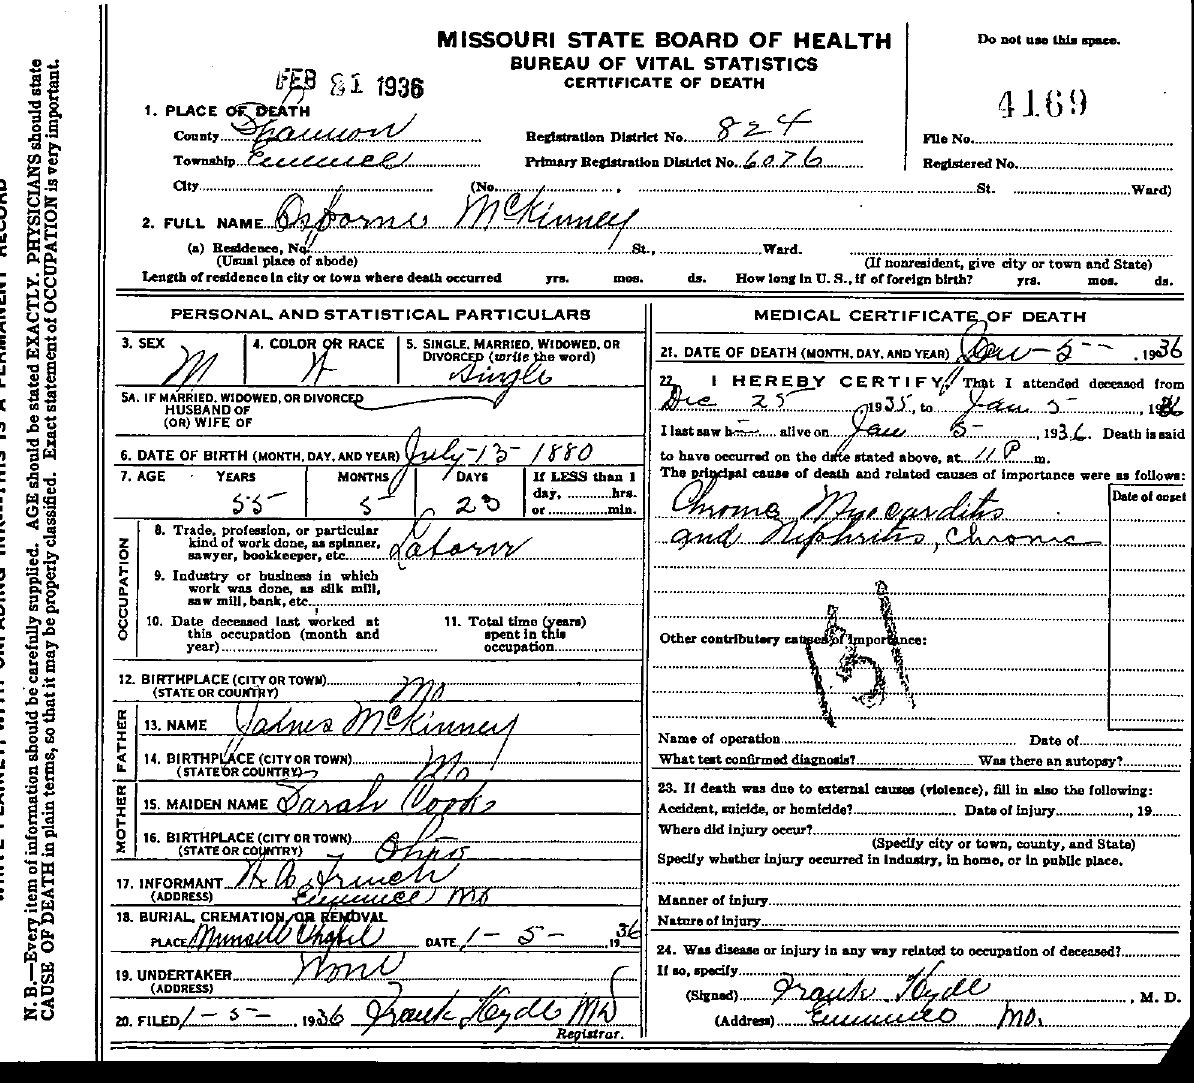 MISSOURI STATE BOARD OF HEALTH
BUREAU OF VITAL STATISTICS
CERTIFICATE OF DEATH
Do not use this space.
FEB 21 1936
4169
1. PLACE OF DEATH
County Shannon Registration District No. 824 File No.
Township Eminence Primary Registration District No. 6076 Registered No.
City (No. , St. Ward)
2. FULL NAME Osborne McKinney
(a) Residence, No. St., Ward.
(Usual place of abode) (If nonresident, give city or town and State)
Length of residence in city or town where death occurred yrs. mos. ds. How long in U. S., if of foreign birth? yrs. mos. ds.
PERSONAL AND STATISTICAL PARTICULARS
3. SEX 4. COLOR OR RACE 5. SINGLE, MARRIED, WIDOWED, OR
DIVORCED (write the word)
M W Single
5A. IF MARRIED, WIDOWED, OR DIVORCED
HUSBAND OF
(OR) WIFE OF
6. DATE OF BIRTH (MONTH, DAY, AND YEAR) July-13-1880
7. AGE YEARS MONTHS DAYS If LESS than 1
day, hrs.
or min.
55 5 23
OCCUPATION
8. Trade, profession, or particular
kind of work done, as spinner,
sawyer, bookkeeper, etc. Laborer
9. Industry or business in which
work was done, as silk mill,
saw mill, bank, etc.
10. Date deceased last worked at
this occupation (month and
year)
11. Total time (years)
spent in this
occupation
12. BIRTHPLACE (CITY OR TOWN)
(STATE OR COUNTRY) Mo
FATHER
13. NAME James McKinney
14. BIRTHPLACE (CITY OR TOWN)
(STATE OR COUNTRY) Mo
MOTHER
15. MAIDEN NAME Sarah Cook
16. BIRTHPLACE (CITY OR TOWN)
(STATE OR COUNTRY) Ohio
17. INFORMANT French
(ADDRESS) Eminence Mo
18. BURIAL, CREMATION, OR REMOVAL
PLACE Munsell Chapel DATE 1-5- 1936
19. UNDERTAKER None
(ADDRESS)
20. FILED 1-5- 1936 Frank Hyde MD
Registrar.
MEDICAL CERTIFICATE OF DEATH
21. DATE OF DEATH (MONTH, DAY, AND YEAR) Jan-5- , 1936
22. I HEREBY CERTIFY, That I attended deceased from
Dec 25 1935, to Jan 5 , 1936
I last saw h alive on Jan 5- , 1936. Death is said
to have occurred on the date stated above, at 11 P m.
The principal cause of death and related causes of importance were as follows:
Date of onset
Chronic Myocarditis
and Nephritis, Chronic
131
Other contributory causes of importance:
Name of operation Date of
What test confirmed diagnosis? Was there an autopsy?
23. If death was due to external causes (violence), fill in also the following:
Accident, suicide, or homicide? Date of injury , 19
Where did injury occur?
(Specify city or town, county, and State)
Specify whether injury occurred in industry, in home, or in public place.
Manner of injury
Nature of injury
24. Was disease or injury in any way related to occupation of deceased?
If so, specify
(Signed) Frank Hyde , M. D.
(Address) Eminence Mo.
N. B.—Every item of information should be carefully supplied. AGE should be stated EXACTLY. PHYSICIANS should state
CAUSE OF DEATH in plain terms, so that it may be properly classified. Exact statement of OCCUPATION is very important.